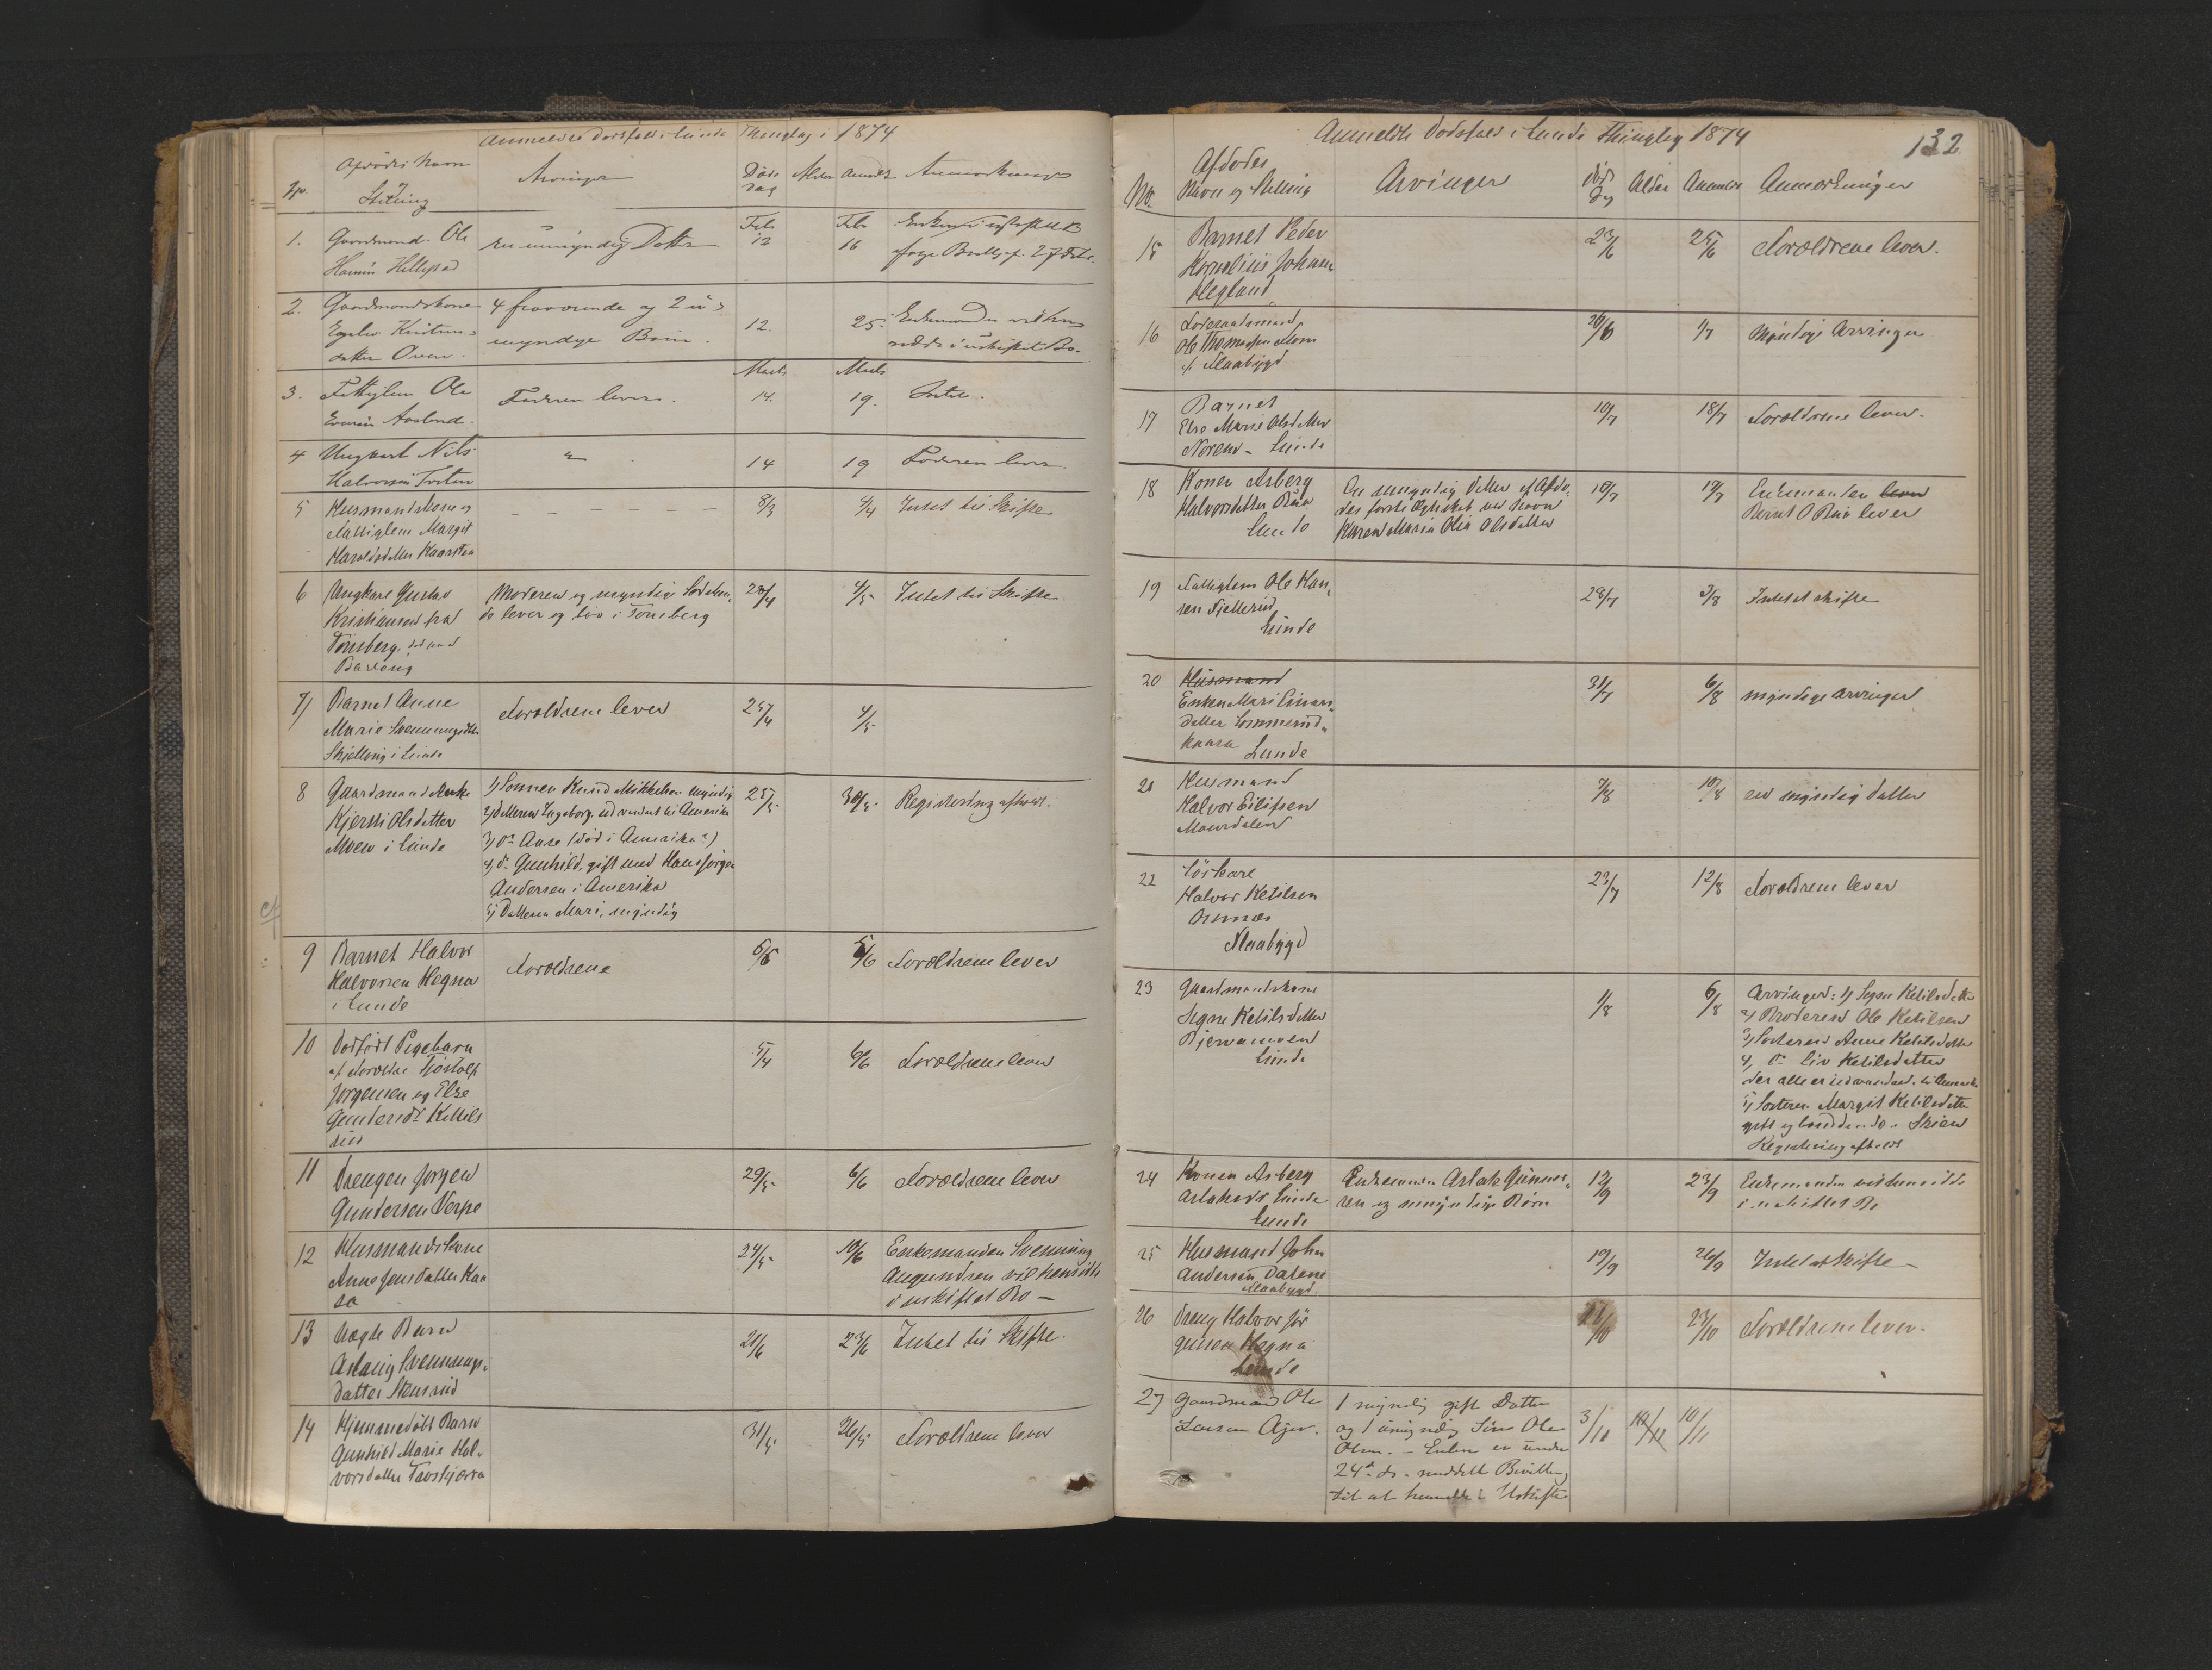 Anmeldte Dødsfald i Lunde Thinglag i 1874
No
Afdødes Navn
og
Stilling
Arvinger
Døds
dag
Alder
Anmeldt
Anmærkninger
1.
Gaardmand Ole
Hansen
en umyndig Datter
Febr
12
Febr
16
27 Febr.
2.
Gaardmandskone
4 fraværende og 2 u-
myndige Børn.
datter Oven.
12.
25.
Enkemanden
i uskiftet Bo.
3.
Fattiglem Ole
Faderen lever.
Marts
14.
Marts
19.
Intet.
4
Ungkarl Nils
Halvorsen
"
14
19
Faderen lever.
5
Husmandskone og
Fattiglem Margit
Haraldsdatter Kaarstea
8/3
9/4
Intet til Skifte
6
Ungkarl Gustav
Kristiansen fra
Tønsberg, død paa
Moderen og myndig Sødsken-
de lever og bor i Tønsberg
28/4
4/5
Intet til Skifte.
7/
Barnet Anne
Marie Svenningsdtr
i Lunde
Forældrene lever
4/5
8
Gaardmandsenke
Kjersti Olsdatter
Moen i Lunde
1/ Sønnen Knud Mikkelsen myndig
2/ Datteren Ingeborg udvandret til Amerika
3/ do Anne (død i Amerika?)
4/ do Gunhild, gift med Hans Jørgen
Andersen i Amerika
5/ Datteren Mari, myndig
25/5
30/5
Registrering afholdt.
9
Barnet Halvor
Halvorsen Hegna
i Lunde
Forældrene
6/5
5/6
Forældrene lever
10
Dødfødt Pigebarn
af Forældre Tjøstolf
Jørgensen og Else
Gundersdr Kittels
rud
5/4
6/6
Forældrene lever
11
Drengen Jørgen
Gundersen Verpe
29/5
6/6
Forældrene lever
12
Husmandskone
Anne Jensdatter Kaa
sa
24/5
10/6
Enkemanden Svenning
Augundsen vil hensidde
i uskiftet Bo —
13
Uægte Barn
Aslaug Svennungs-
datter Stensrud
21/6
23/6
Intet til Skifte.
14
Hjemmedøbt Barn
Gunhild Marie Hal-
vorsdatter
31/5
26/5
Forældrene lever
Anmeldte Dødsfald i Lunde Thinglag 1874
132
No.
Afdødes
Navn og Stilling
Arvinger
Døds
Dg
Alder
Anmeldt
Anmerkninger
15
Barnet Peder
Kornelius Johnsen
Hegland
23/6
25/6
Forældrene lever.
16
Ole Thomassen Mom
i Flaabygd
26/6
1/7
Myndige Arvinger
17
Barnet
Else Marie Olsdatter
Noremo - Lunde
10/7
18/7
Forældrene lever.
18
Konen Asberg
Halvorsdatter Bua
Lunde
En umyndig Datter af Afdø-
des første Ægteskab ved Navn
Karen Maria Olia Olsdatter
10/7
19/7
Enkemanden lever
Bernt O Bua lever
19
Fattiglem Ole Han-
sen Fjellerud
Lunde
28/7
3/8
Intet at skifte
20
Husmand
Enken Mari Einars-
datter Sommerud-
kaasa Lunde
31/7
6/8
myndige Arvinger
21
Husmand
Halvor Eilifsen
Maurdalen
7/8
10/8
en myndig Datter
22
Løskarl
Halvor Ketilsen
Flaabygd
23/7
12/8
Forældrene lever
23
Gaardmandskone
Signe Ketilsdatter
Bjervamoen
Lunde
1/8
6/8
Arvinger: 1/ Signe Ketilsdatter
2/ Broderen Ole Ketilsen
3/ Søsteren Anne Ketilsdatter
4/ do Liv Ketilsdatter
der alle er udvandret til Amerika
5/ Søsteren Margit Ketilsdatter
gift og boende i Skien
Registrering afholdt
24
Konen Asberg
Aslaksdr Lunde
Lunde
Enkemanden Aslak Gunnar-
sen og umyndige Børn
12/9
23/9
Enkemanden vil hensidde
i uskiftet Bo
25
Husmand John
Andersen Dalene
Flaabygd.
19/9
26/9
Intet at skifte
26
Dreng Halvor Jør
gensen Hegna
Lunde
23/10
Forældrene lever.
27
Gaardmand Ole
Larsen Ajer.
1 myndig gift Datter
og 1 umyndig Søn Ole
Olsen. — Enken er under
24de ds. meddelt Bevilling
til at hensidde i Uskifte
3/11
10/11
10/11